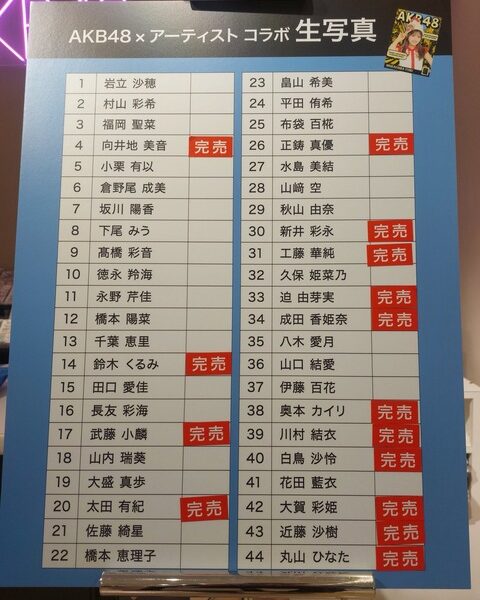 AKB48×アーティスト コラボ 生写真
AKB48
1 岩立 沙穂
2 村山 彩希
3 福岡 聖菜
4 向井地 美音 完売
5 小栗 有以
6 倉野尾 成美
7 坂川 陽香
8 下尾 みう
9 髙橋 彩音
10 徳永 羚海
11 永野 芹佳
12 橋本 陽菜
13 千葉 恵里
14 鈴木 くるみ 完売
15 田口 愛佳
16 長友 彩海
17 武藤 小麟 完売
18 山内 瑞葵
19 大盛 真歩
20 太田 有紀 完売
21 佐藤 綺星
22 橋本 恵理子
23 畠山 希美
24 平田 侑希
25 布袋 百椛
26 正鋳 真優 完売
27 水島 美結
28 山﨑 空
29 秋山 由奈
30 新井 彩永 完売
31 工藤 華純 完売
32 久保 姫菜乃
33 迫 由芽実 完売
34 成田 香姫奈 完売
35 八木 愛月
36 山口 結愛
37 伊藤 百花
38 奥本 カイリ 完売
39 川村 結衣 完売
40 白鳥 沙怜 完売
41 花田 藍衣
42 大賀 彩姫 完売
43 近藤 沙樹 完売
44 丸山 ひなた 完売